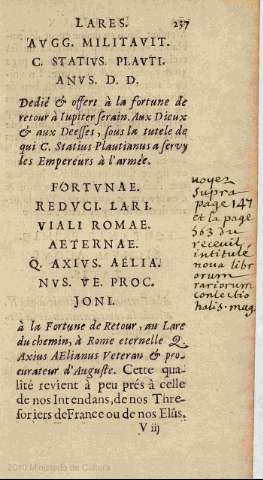 LARES. 237
AVGG. MILITAVIT.
C. STATIVS. PLAVTI-
ANVS. D. D.
Dedié & offert à la fortune de
retour à Iupiter serain. Aux Dieux
& aux Deesses, sous la tutele de
qui C. Statius Plautianus a servy
les Empereurs à l'armée.
FORTVNAE.
REDVCI. LARI.
VIALI ROMAE.
AETERNAE.
Q. AXIVS. AELIA-
NVS. VE. PROC.
IONI.
à la Fortune de Retour, au Lare
du chemin, à Rome eternelle Q.
Axius AElianus Veteran & pro-
curateur d'Auguste. Cette qua-
lité revient à peu prés à celle
de nos Intendans, de nos Thre-
soriers de France ou de nos Elûs.
V iij
voyez
supra
page 147
et la page
563 du
receuil
intitulé
nova libr
orum
rariorum
conlectio
halis. mag.
2010 Ministerio de Cultura